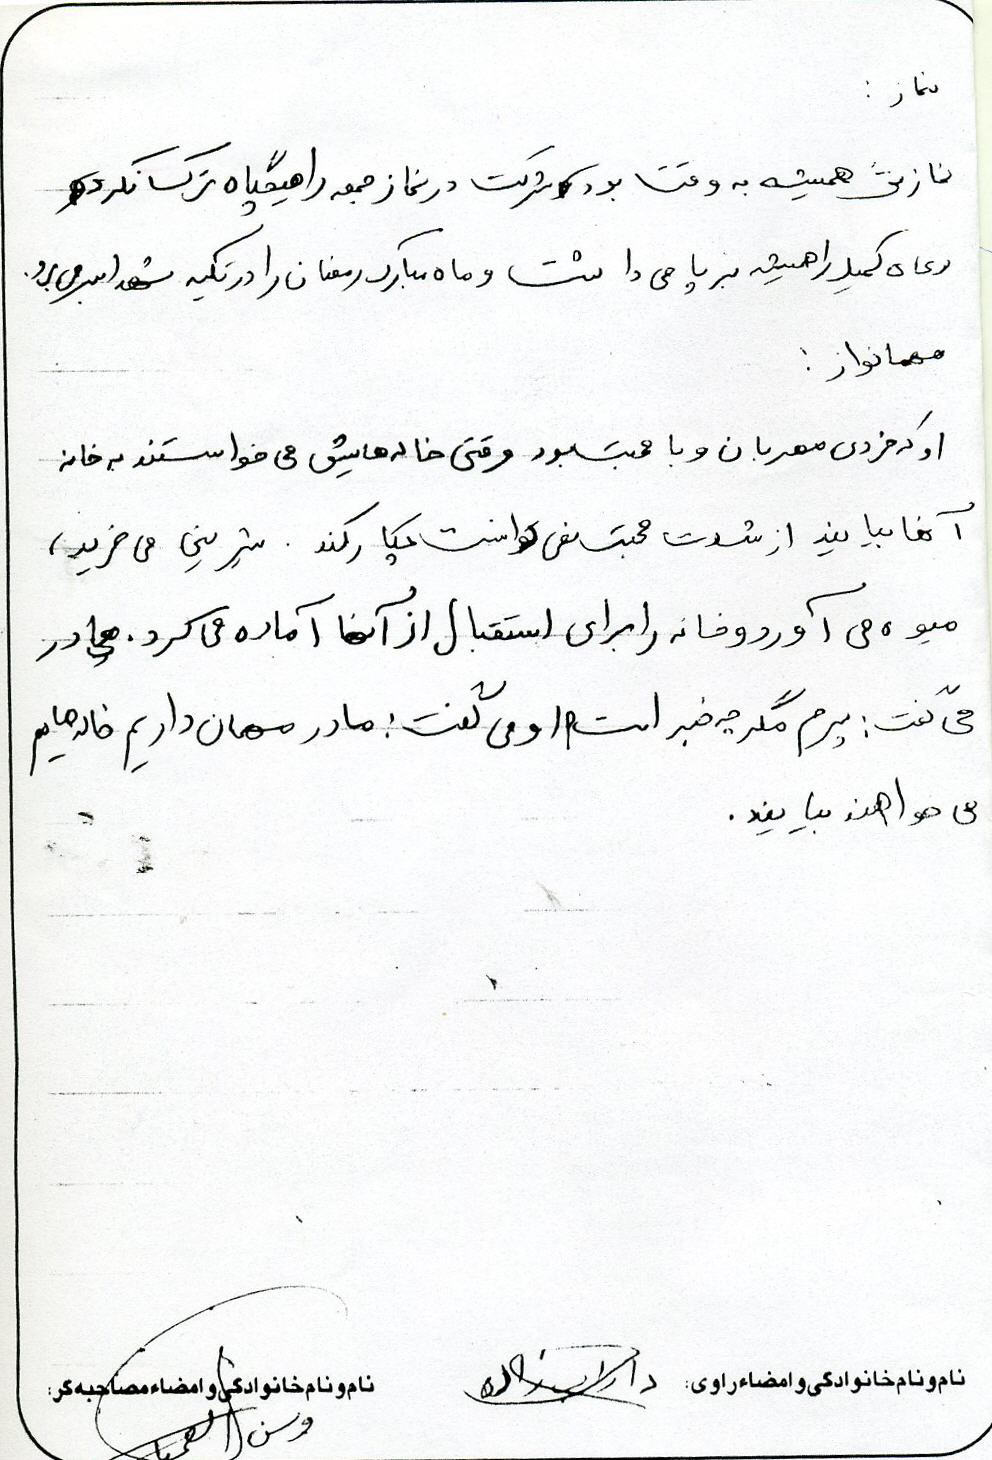 نماز :
نمازش همیشه به وقت بود و شرکت در نماز جمعه را هیچگاه ترک نکرد و
دعای کمیل را همیشه برپا می داشت و ماه مبارک رمضان را در تکیه شهدا بسر می برد.
مهمانواز :
او که فردی مهربان و با محبت بود وقتی خاله هایش می خواستند به خانه
آنها بیایند از شدت محبت نمی توانست چکار کند . شیرینی می خرید ،
میوه می آورد و خانه را برای استقبال از آنها آماده می کرد . مادر
می گفت : پسرم مگر چه خبر است او می گفت : مادر مهمان داریم خاله هایم
می خواهند بیایند .
نام و نام خانوادگی و امضاء راوی:
نام و نام خانوادگی و امضاء مصاحبه گر: